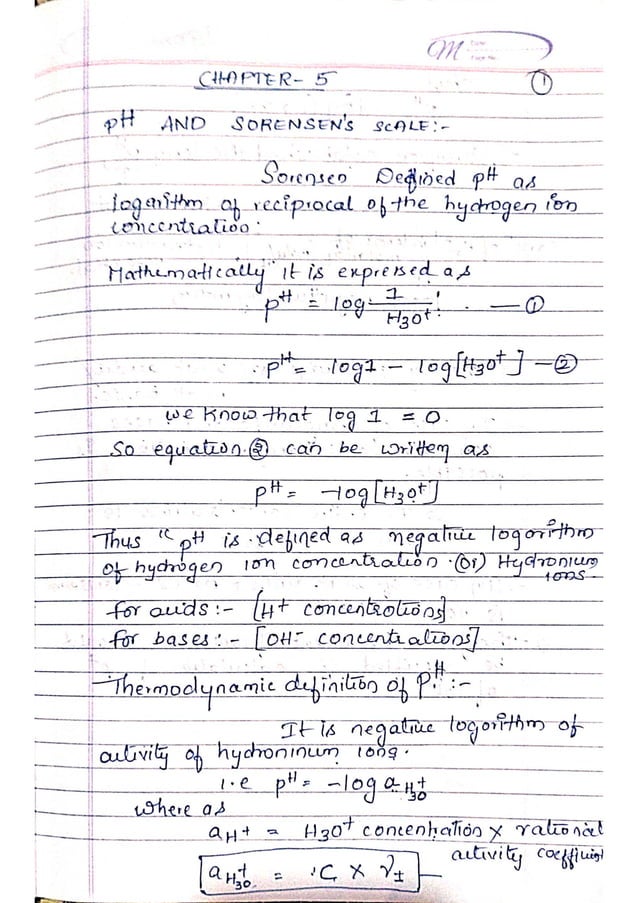 M Date: Page No.
CHAPTER- 5
1
pH AND SORENSEN'S SCALE:-
Sorensen Defined pH as
logarithm of reciprocal of the hydrogen ion
concentration.
Mathematically it is expressed as
pH = log 1/H3O+ — ①
pH = log1 - log[H3O+] — ②
we know that log 1 = 0
So equation ② can be written as
pH = -log[H3O+]
Thus "pH is defined as negative logorithm
of hydrogen ion concentration (or) Hydronium
ions.
for acids:- [H+ concentrotions]
for bases:- [OH- concentrations]
Thermodynamic definition of pH:-
It is negative logorithm of
activity of hydroninum ions.
i.e pH = -log aH3O+
where as
aH+ = H3O+ concentration x rational
activity coefficient
aH3O+ = C x γ±